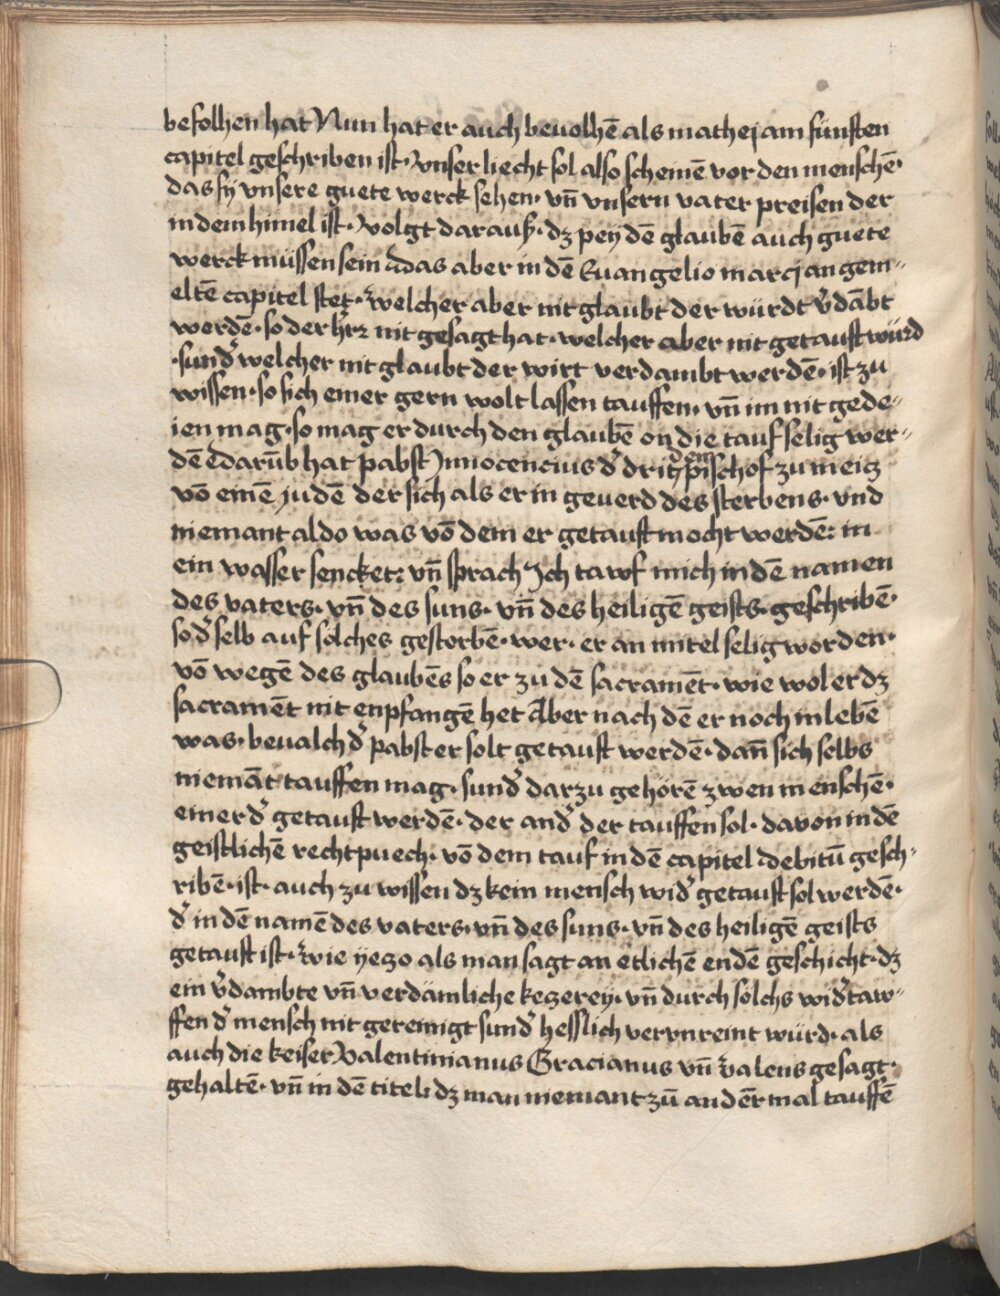 befolhen hat Nun hat er auch beuolhē als mathej am fünften
capitel geschriben ist· Vnser liecht sol also scheinē vor den menschē·
das sÿ vnsere guete werck sehen· vn̄ vnsern vater preisen der
in dem himel ist· Volgt darauß· dz pey dē glaubē auch guete
werck müssen sein Das aber in dē Euangelio marcj an gem-
eltē capitel stet· welcher aber nit glaubt der würdt v̄dābt
werdē· so der hr̄ nit gesagt hat· welcher aber nit getauft würd
·sund̄ welcher nit glaubt der wirt verdambt werdē· ist zu
wissen· so sich einer gern wolt lassen tauffen· vn̄ im nit gede-
ien mag· so mag er durch den glaubē on die tauf selig wer-
dē Darūb hat pabst Innocencius d̄ drit dem pischof zu meitz
vō einē judē der sich als er in geuerd des sterbens· vnd
niemant aldo was vō dem er getauft mocht werdē: in
ein wasser sencket: vn̄ sprach Ich tawf mich in dē namen
des vaters· vn̄ des suns· vn̄ des heiligē geists· geschribē·
so d̄ selb auf solches gestorbē· wer· er an mitel selig worden·
vō wegē des glaubēs so er zu dē sacramēt· wie wol er dz
sacramēt nit enpfangē het Aber nach dē er noch in lebē
was· beualch d̄ pabst er solt getauft werdē· dan̄ sich selbs
niemāt tauffen mag· sund̄ darzu gehörē zwen menschē·
einer d̄ getauft werdē· der and̄ der tauffen sol· dauon in dē
geistlichē rechtpuech· vō dem tauf in dē capitel debitū gesch-
ribē· ist· auch zu wissen dz kein mensch wid̄ getauft sol werdē·
d̄ in dē namē des vaters· vn̄ des suns· vn̄ des heiligē geists
getauft ist· wie yetzo als man sagt an etlichē endē geschicht· dz
ein v̄dambte vn̄ verdāmliche ketzerey· vn̄ durch solchs wid̄taw-
ffen d̄ mensch nit gereinigt sund̄ hesslich vervnreint würd· als
auch die keiser Valentinianus Gracianus vn̄ valens gesagt·
gehaltē· vn̄ in dē titel: dz man niemant zū andēr mal tauffē